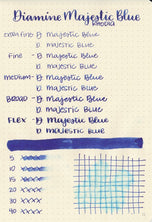 Diamine Majestic Blue
RHODIA
extra fine - D Majestic Blue
D Majestic Blue
Fine - D Majestic Blue
D Majestic Blue
medium - D Majestic Blue
D Majestic Blue
BROAD - D Majestic Blue
D Majestic Blue
FLEX - D Majestic Blue
D Majestic Blue
5 xxxxx
10 xxxxx
15 xxxxx
20 xxxx
30 xxxx
40 xxx